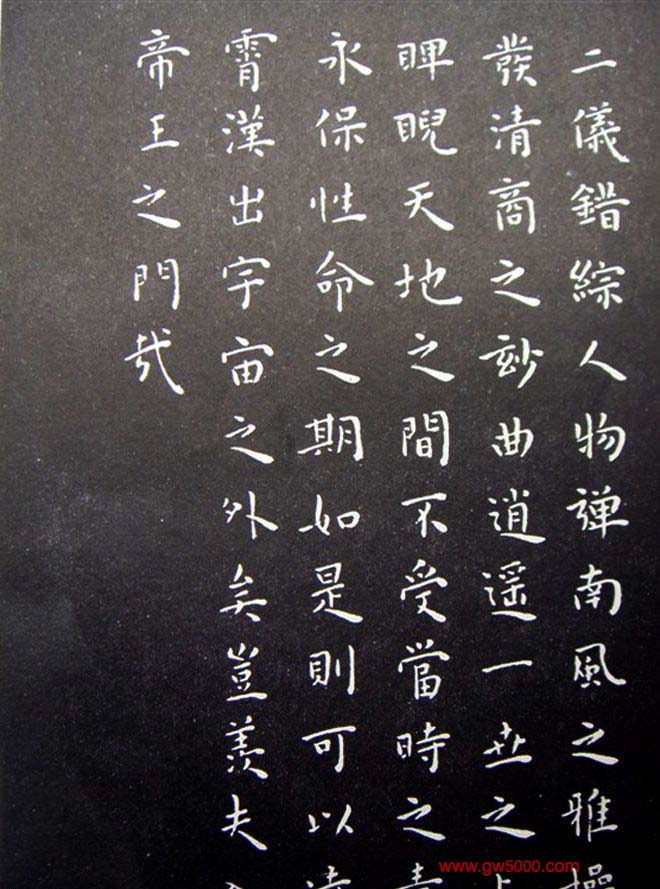 二儀錯綜人物彈南風之雅
發清商之玅曲逍遥一世之
睥睨天地之間不受當時之
永保性命之期如是則可以
霄漢出宇宙之外矣豈羨夫
帝王之門哉
www.gw5000.com